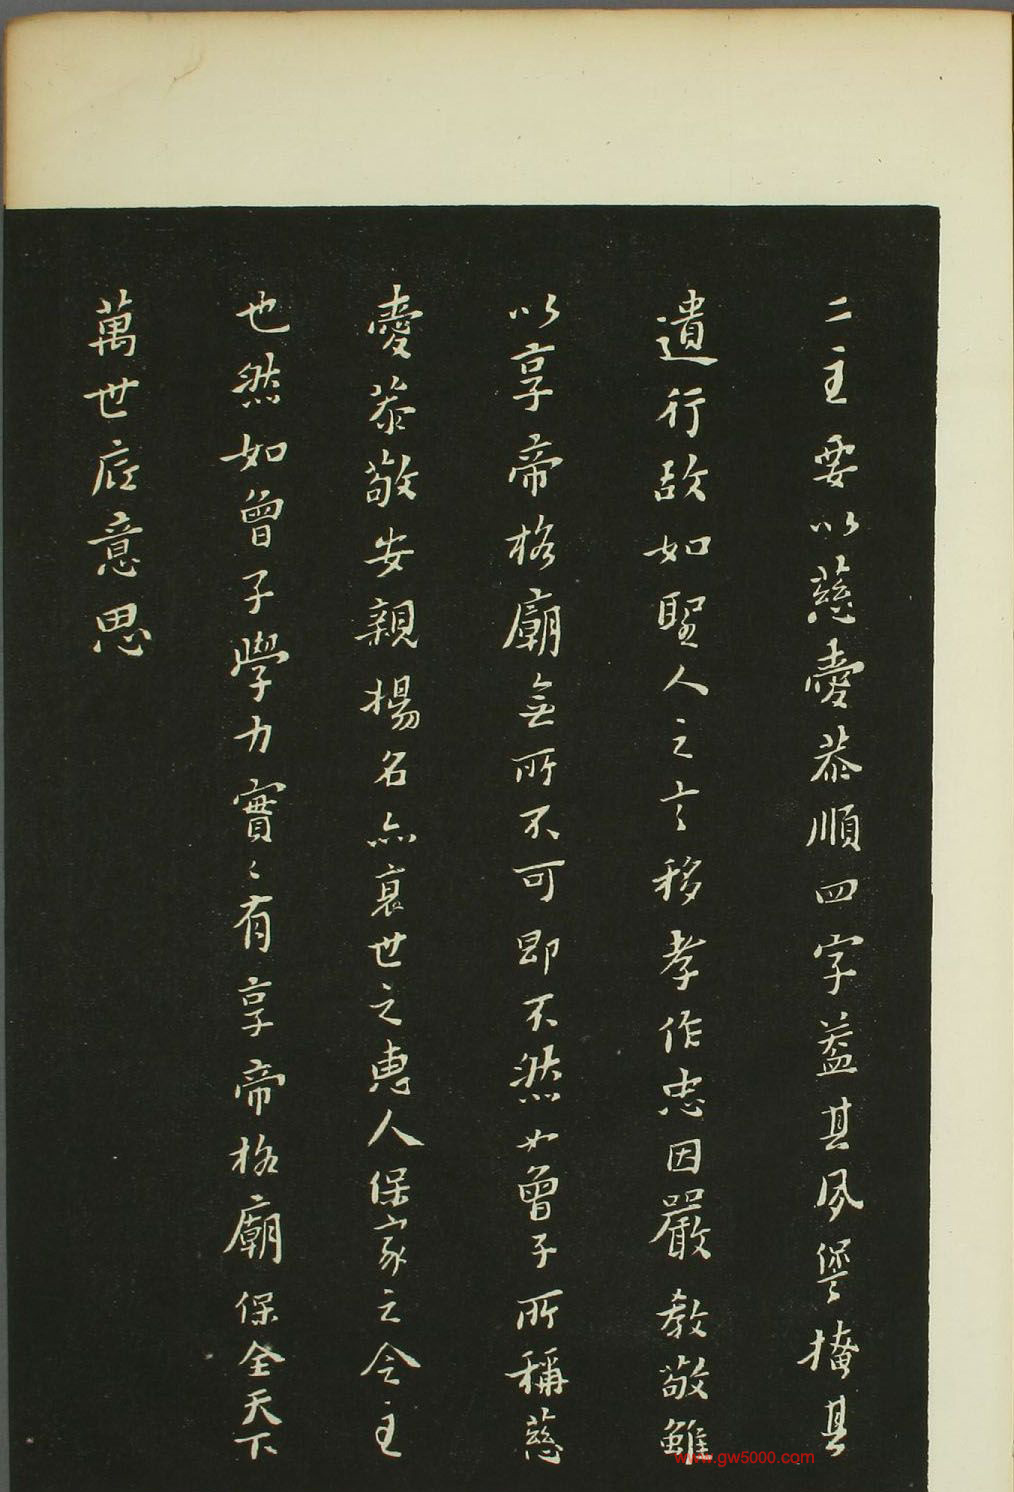 二主要以慈愛恭順四字蓋其夙譽掩其
遺行故如聖人之言移孝作忠因嚴教敬雖
以享帝格廟無所不可即不然如曾子所稱慈
愛恭敬安親揚名亦衰世之專人保家之令主
也然如曾子學力實〻有享帝格廟保全天下
萬世底意思
www.gw5000.com